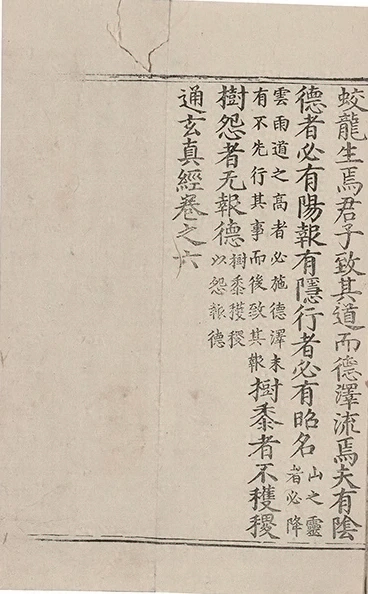 蛟龍生焉君子致其道而德澤流焉夫有陰
德者必有陽報有隱行者必有昭名山之靈者必降
雲雨道之高者必施德澤未有不先行其事而後致其報樹黍者不穫稷
樹怨者无報德樹黍獲稷以怨報德
通玄真經卷之六